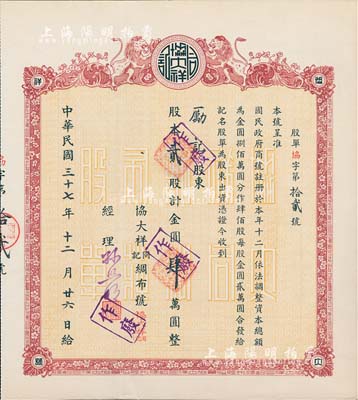 上海陽明拍賣
股單協字第拾貳號
本號呈准
國民政府商號註册於本年十二月依法調整資本總額
為金圓捌佰萬圓分作肆佰股每股金圓貳萬圓合發給
記名股單為股東出資憑證今收到
勵記股東
股本貳股計金圓肆萬圓整
協大祥記綢布號
經理
中華民國三十七年十二月廿六日給
協字第拾貳號
作廢
作廢
作廢
祥